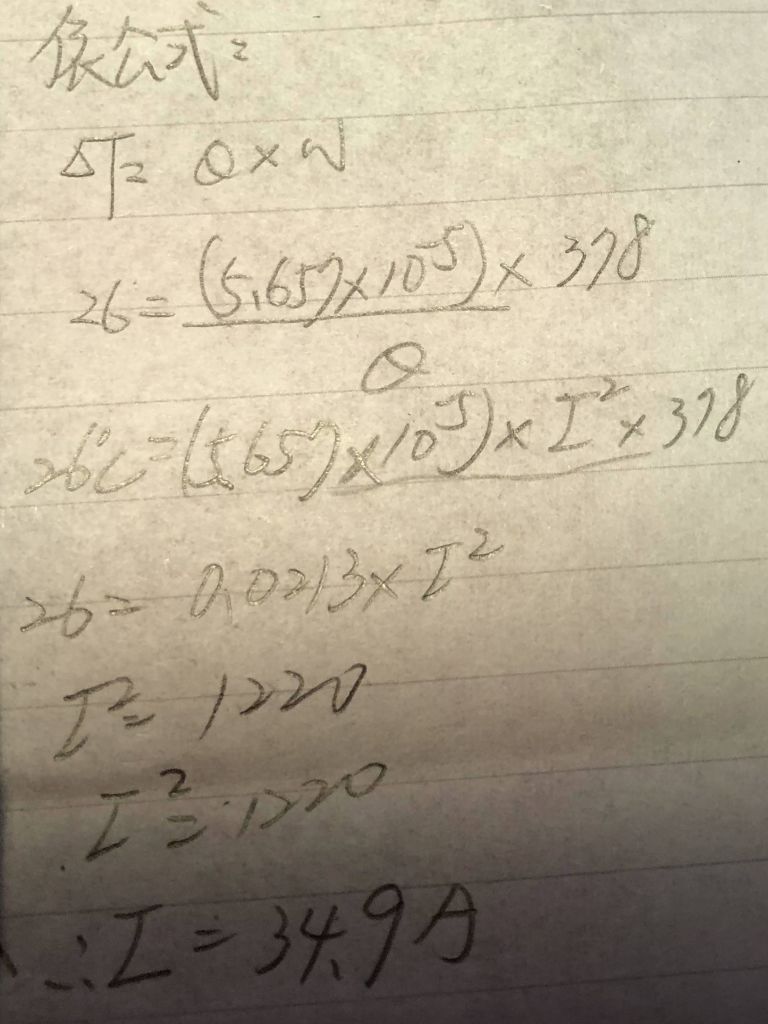 依公式=
ΔT= θ×W
26= (5.657×10⁻⁵)×378
θ
26℃=(5.657×10⁻⁵)×I²×378
26= 0.0213×I²
I²= 1220
I²=1220
∴I=34.9A